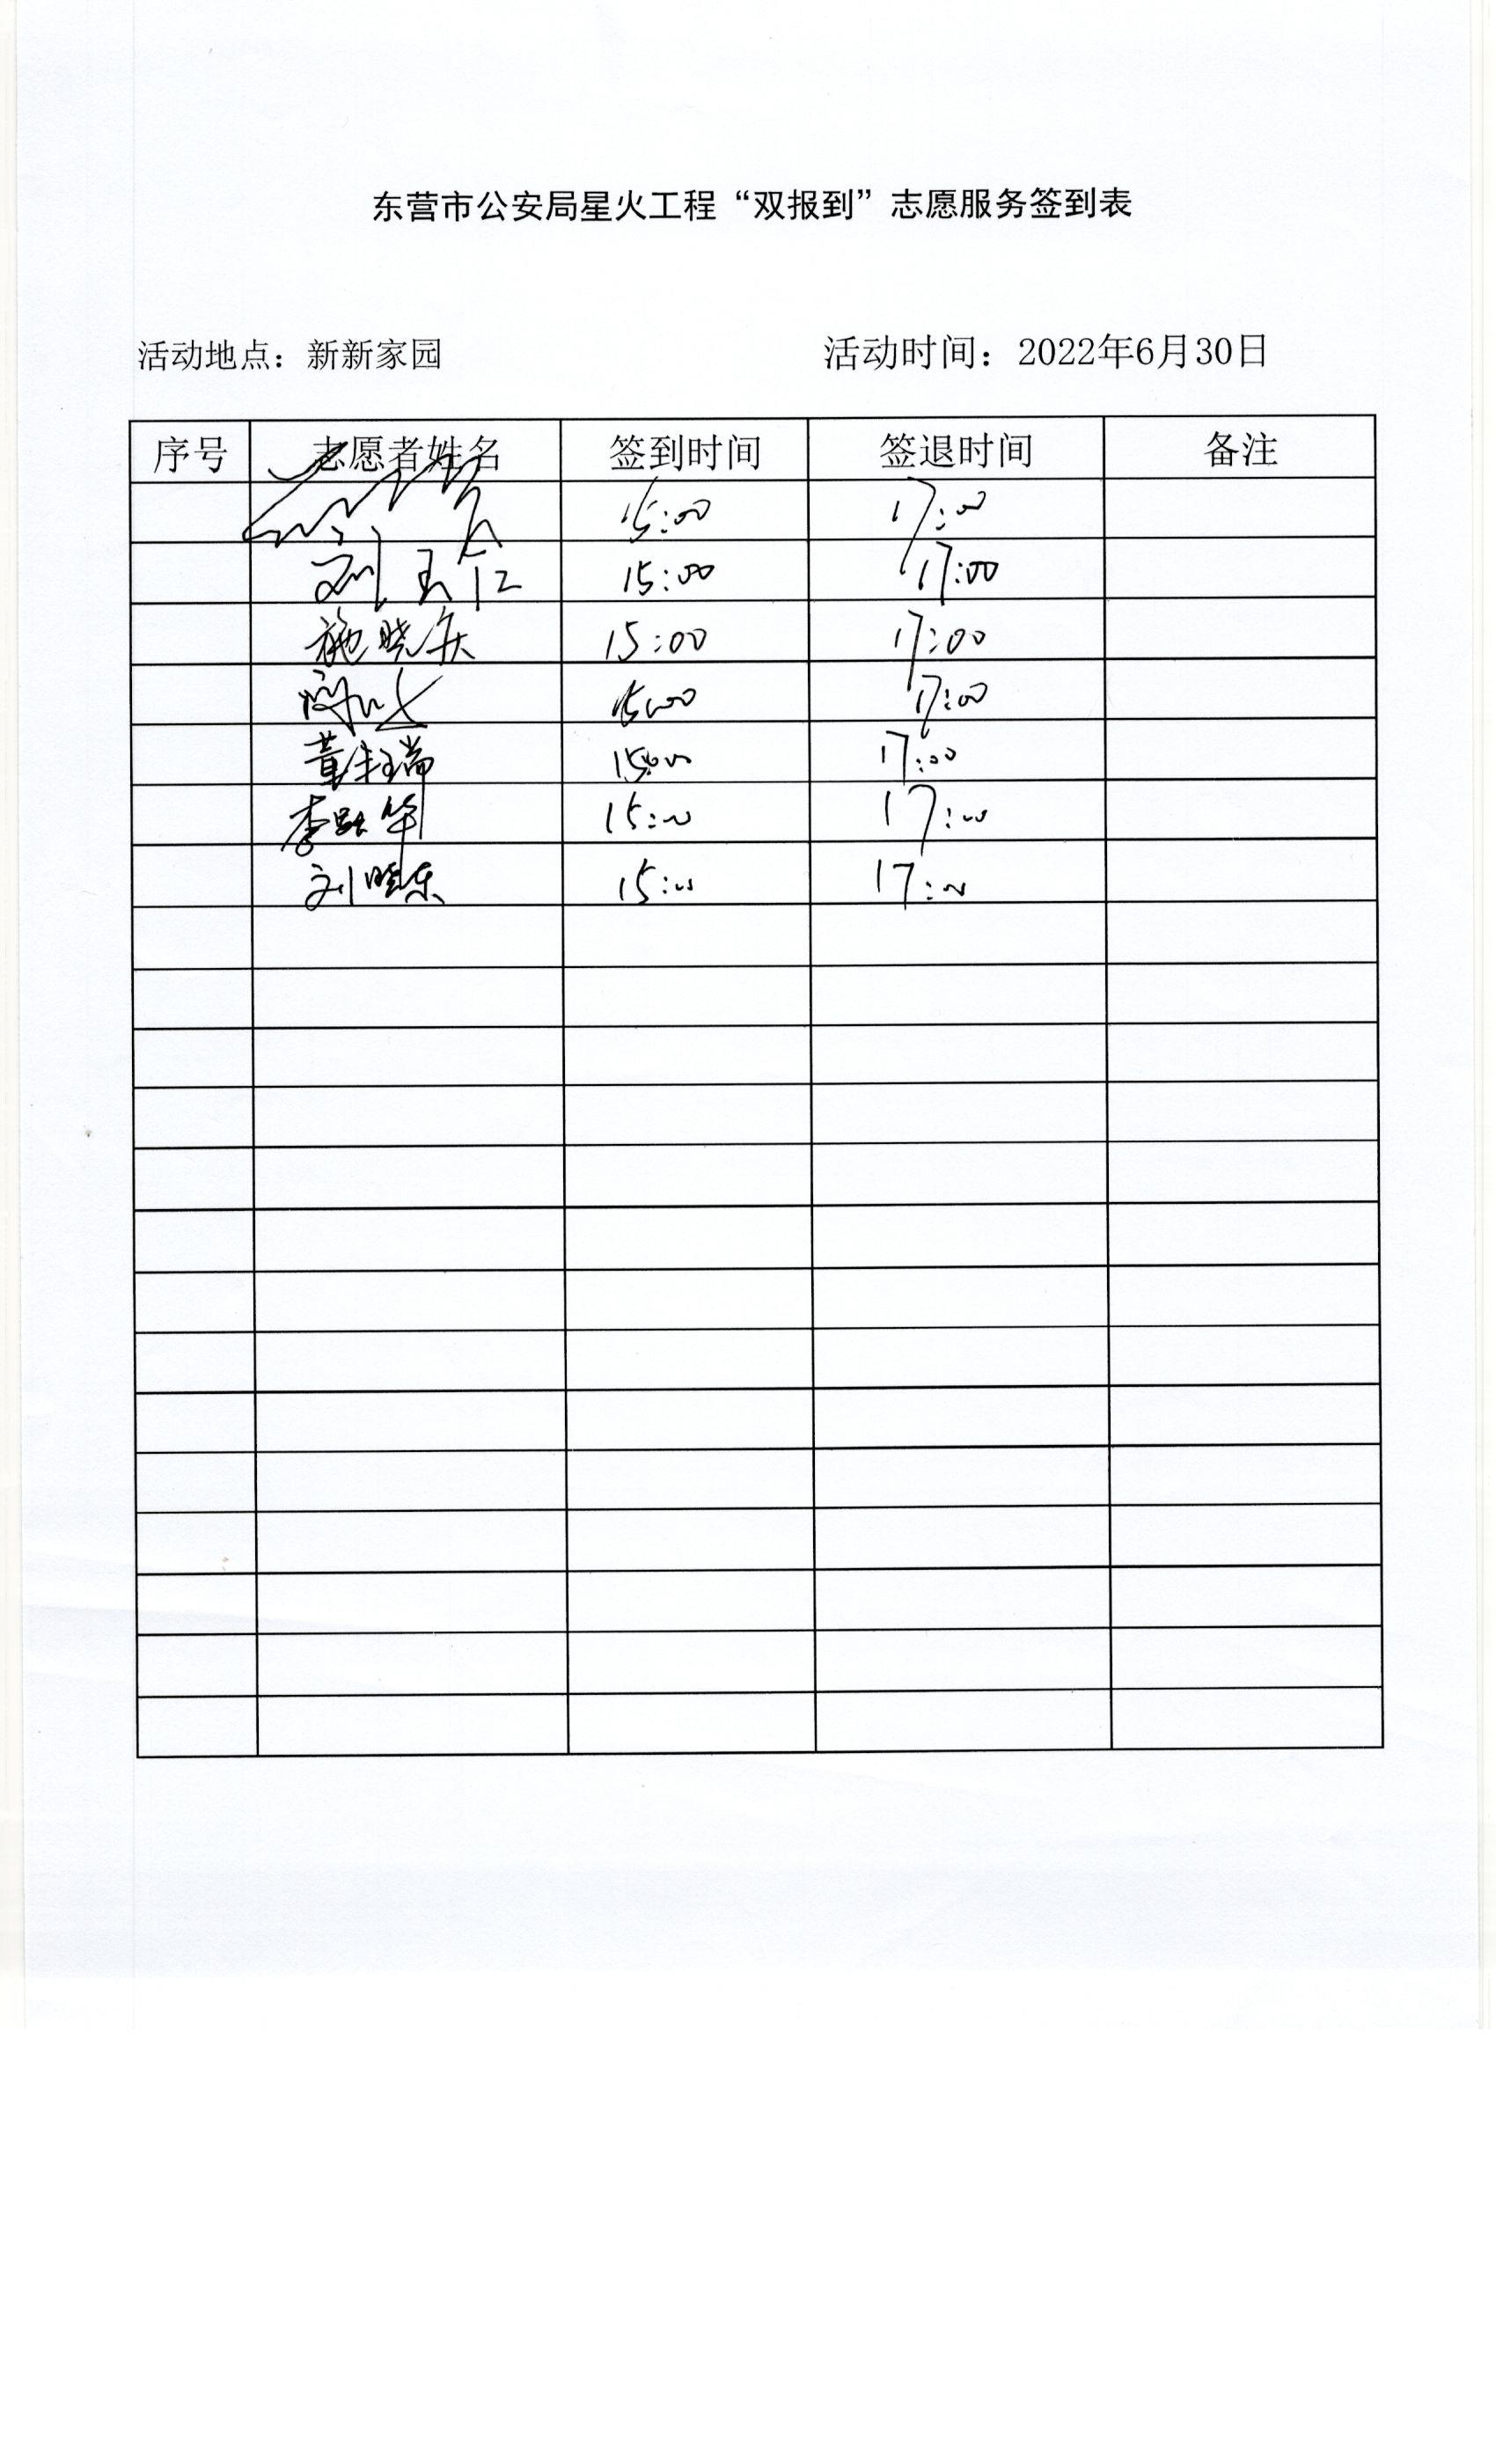 东营市公安局星火工程“双报到”志愿服务签到表
活动地点：新新家园 活动时间：2022年6月30日
序号 志愿者姓名 签到时间 签退时间 备注
15:00 17:00
刘 15:00 17:00
施晓 15:00 17:00
15:00 17:00
董 瑞 15:00 17:00
李 华 15:00 17:00
刘晓东 15:00 17:00